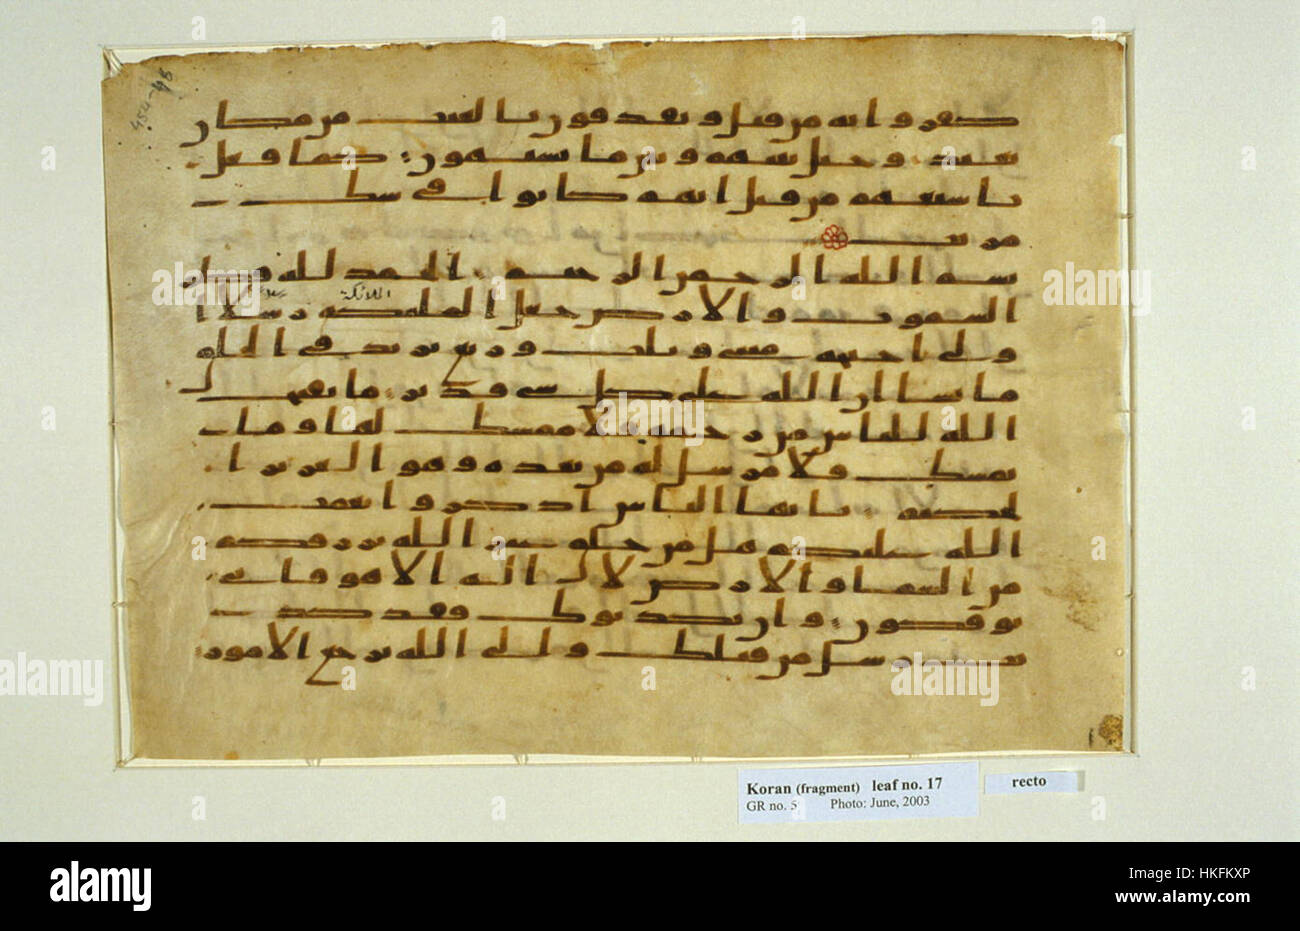 كفروا به من قبل ويقذفون بالغيب من مكان
بعيد وحيل بينهم وبين ما يشتهون كما فعل
باشيعهم من قبل انهم كانوا في شك
مريب
بسم الله الرحمن الرحيم الحمد لله فاطر
الملائكة
السموت والارض جعل الملئكة رسلا ا
ولى اجنحة مثنى وثلث وربع يزيد في الخلق
ما يشا ان الله على كل شى قدير ما يفتح
الله للناس من رحمة فلا ممسك لها وما
يمسك فلا مرسل له من بعده وهو العزيز ا
لحكيم يايها الناس اذكروا نعمت
الله عليكم هل من خلق غير الله يرزقكم
من السما والارض لا اله الا هو فانى
توفكون وان يكذبوك فقد كذبت
رسل من قبلك والى الله ترجع الامور
Koran (fragment) leaf no. 17
GR no. 5 Photo: June, 2003
recto
alamy
Image ID: HKFKXP
www.alamy.com